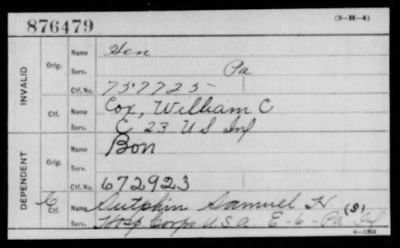 876479 (3-H-4)
INVALID
Orig.
Name Hen
Serv. Pa
Ctf. No. 757725
Ctf.
Name Cox, William C
Serv. C 23 U S Inf
DEPENDENT
Orig.
Name Bon
Serv.
Ctf. No. 672923
C Ctf.
Name Sutphin Samuel H (S)
Serv. Hosp Corps U.S.A E-6-Pa Inf